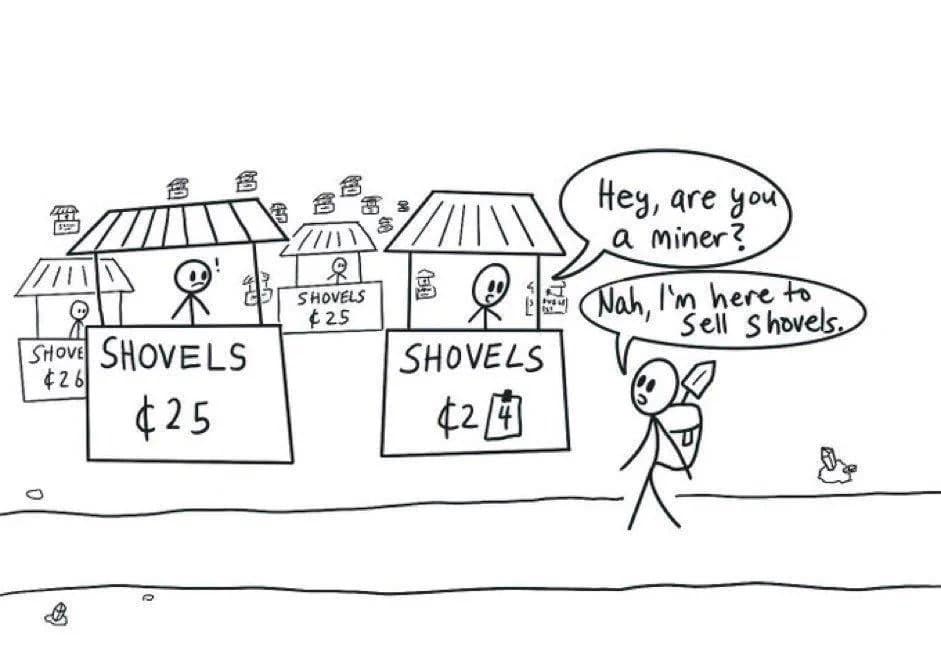 Hey, are you
a miner?
Nah, I'm here to
sell shovels.
SHOVELS
¢25
SHOVELS
¢24
SHOVELS
¢25
¢26